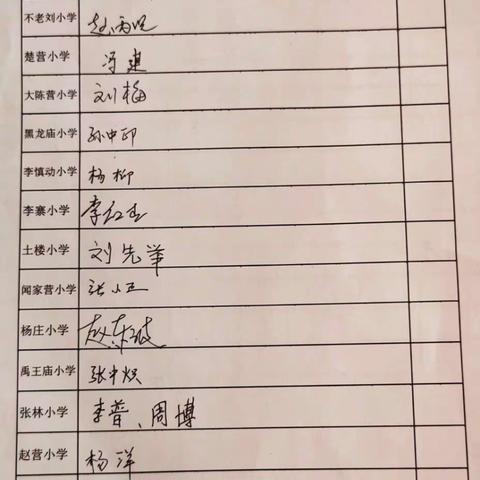 不老刘小学
楚营小学 冯建
大陈营小学 刘梅
黑龙庙小学 孙中印
李慎动小学 杨柳
李寨小学
土楼小学 刘先举
闻家营小学 张小正
杨庄小学
禹王庙小学 张中炽
张林小学 李普、周博
赵营小学 杨洋